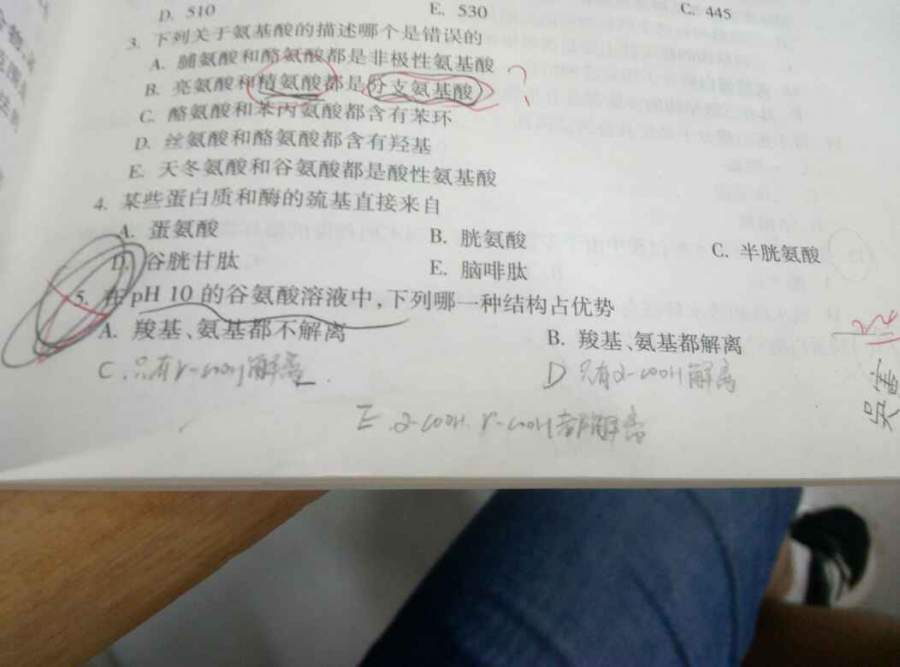 D. 510 E. 530 C. 445
3. 下列关于氨基酸的描述哪个是错误的
A. 脯氨酸和酪氨酸都是非极性氨基酸
B. 亮氨酸和精氨酸都是分支氨基酸 ?
C. 酪氨酸和苯丙氨酸都含有苯环
D. 丝氨酸和酪氨酸都含有羟基
E. 天冬氨酸和谷氨酸都是酸性氨基酸
4. 某些蛋白质和酶的巯基直接来自
A. 蛋氨酸 B. 胱氨酸 C. 半胱氨酸
D. 谷胱甘肽 E. 脑啡肽
5. 在pH 10 的谷氨酸溶液中,下列哪一种结构占优势
A. 羧基、氨基都不解离 B. 羧基、氨基都解离
C. 只有γ-COOH解离 D 只有α-COOH解离
E α-COOH. γ-COOH都解离